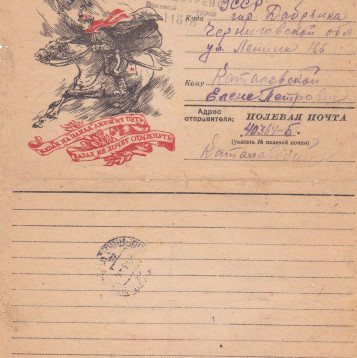 Военной
Куда УССР
гор Добрянка
Черниговской обл
ул Ленина
Кому Каталевской
Елене Петровне
Адрес
отправителя: ПОЛЕВАЯ ПОЧТА
(указать № полевой почты)
КАЗАКИ НА ЗАПАД ДЕРЖАТ ПУТЬ
КАЗАК НЕ ХОЧЕТ ОТДОХНУТЬ